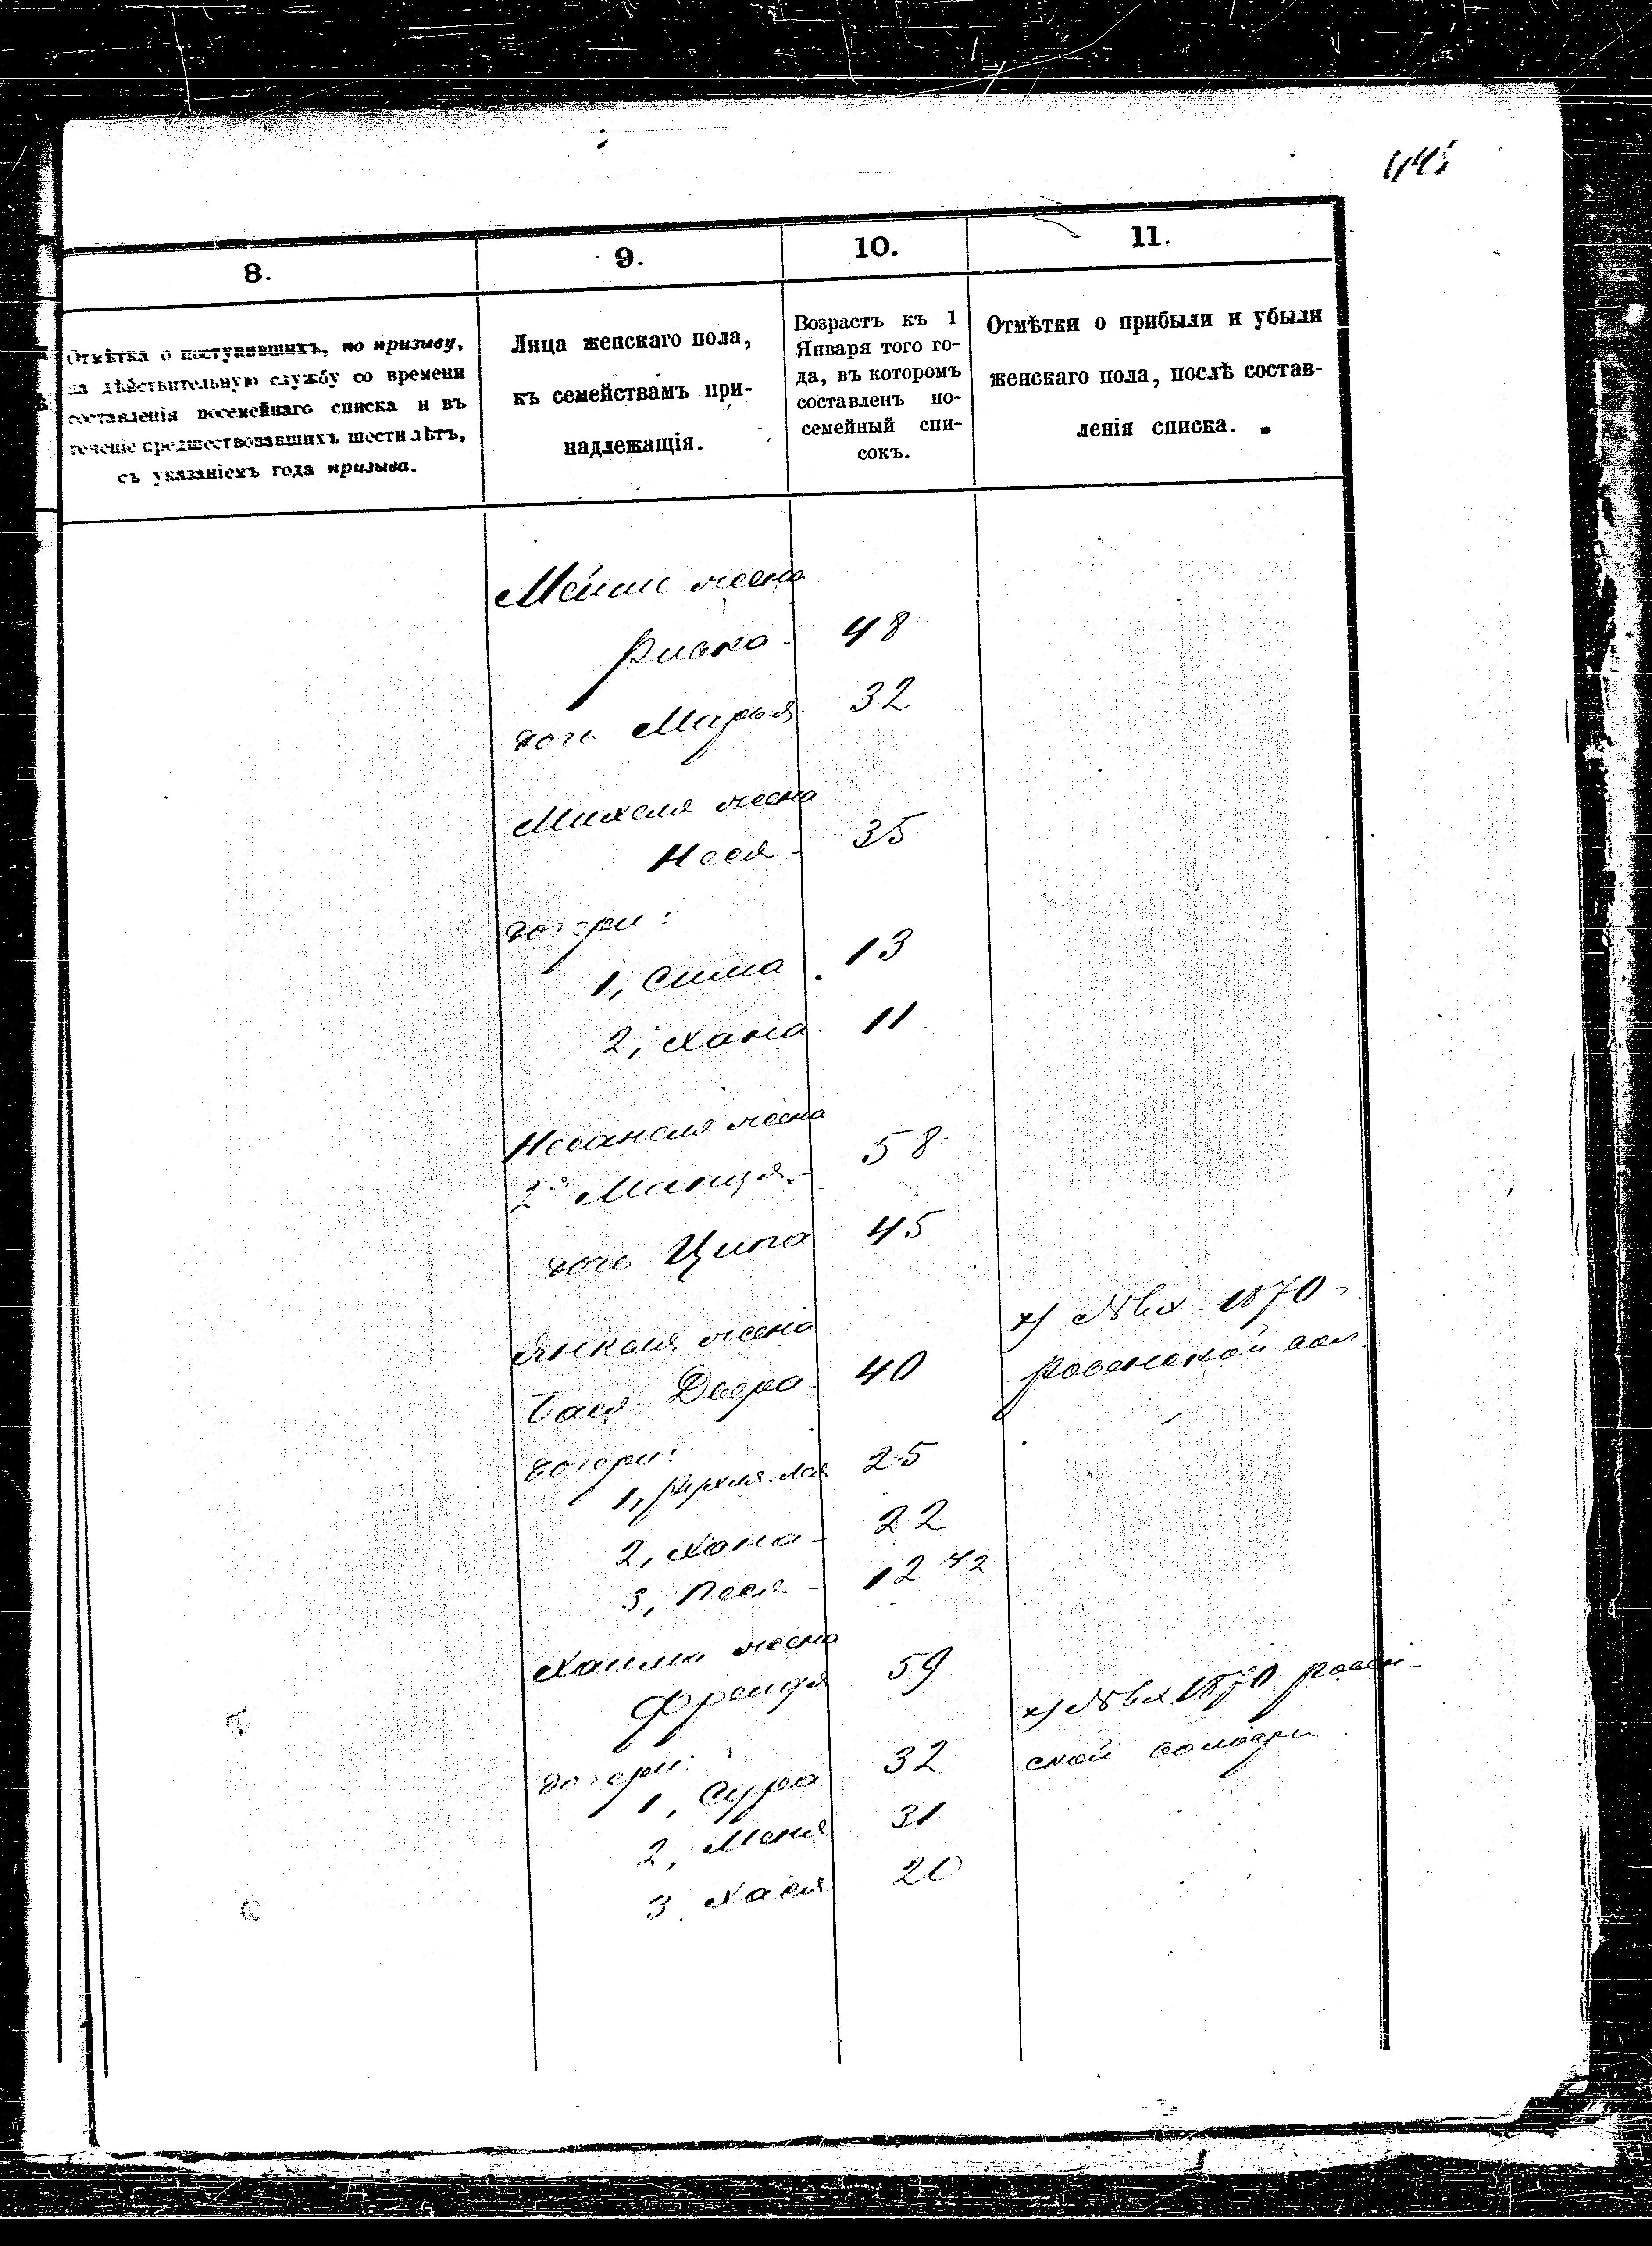 445
8.
9.
10.
11.
Отмѣтка о поступившихъ, по призыву,
на дѣйствительную службу со времени
составленія посемейнаго списка и въ
теченіе предшествовавшихъ шести лѣтъ,
съ указаніемъ года призыва.
Лица женскаго пола,
къ семействамъ при-
надлежащія.
Возрастъ къ 1
Января того го-
да, въ которомъ
составленъ по-
семейный спи-
сокъ.
Отмѣтки о прибыли и убыли
женскаго пола, послѣ состав-
ленія списка.
жена
Ривка - 48
дочь Марья 32
Михеля жена
Нося - 35
дочери:
1, Сима 13
2, Хана 11
жена
58
дочь Ципа 45
Янкеля жена
Бася Двера 40
дочери:
1, Рухля Лая 25
2, Хана - 22
3, Песя - 12 1/2
Хаима жена
Фрейдя 59
дочери:
1, Сура 32
2, Меня 31
3, Хася 20
1870 г.
1870
ской